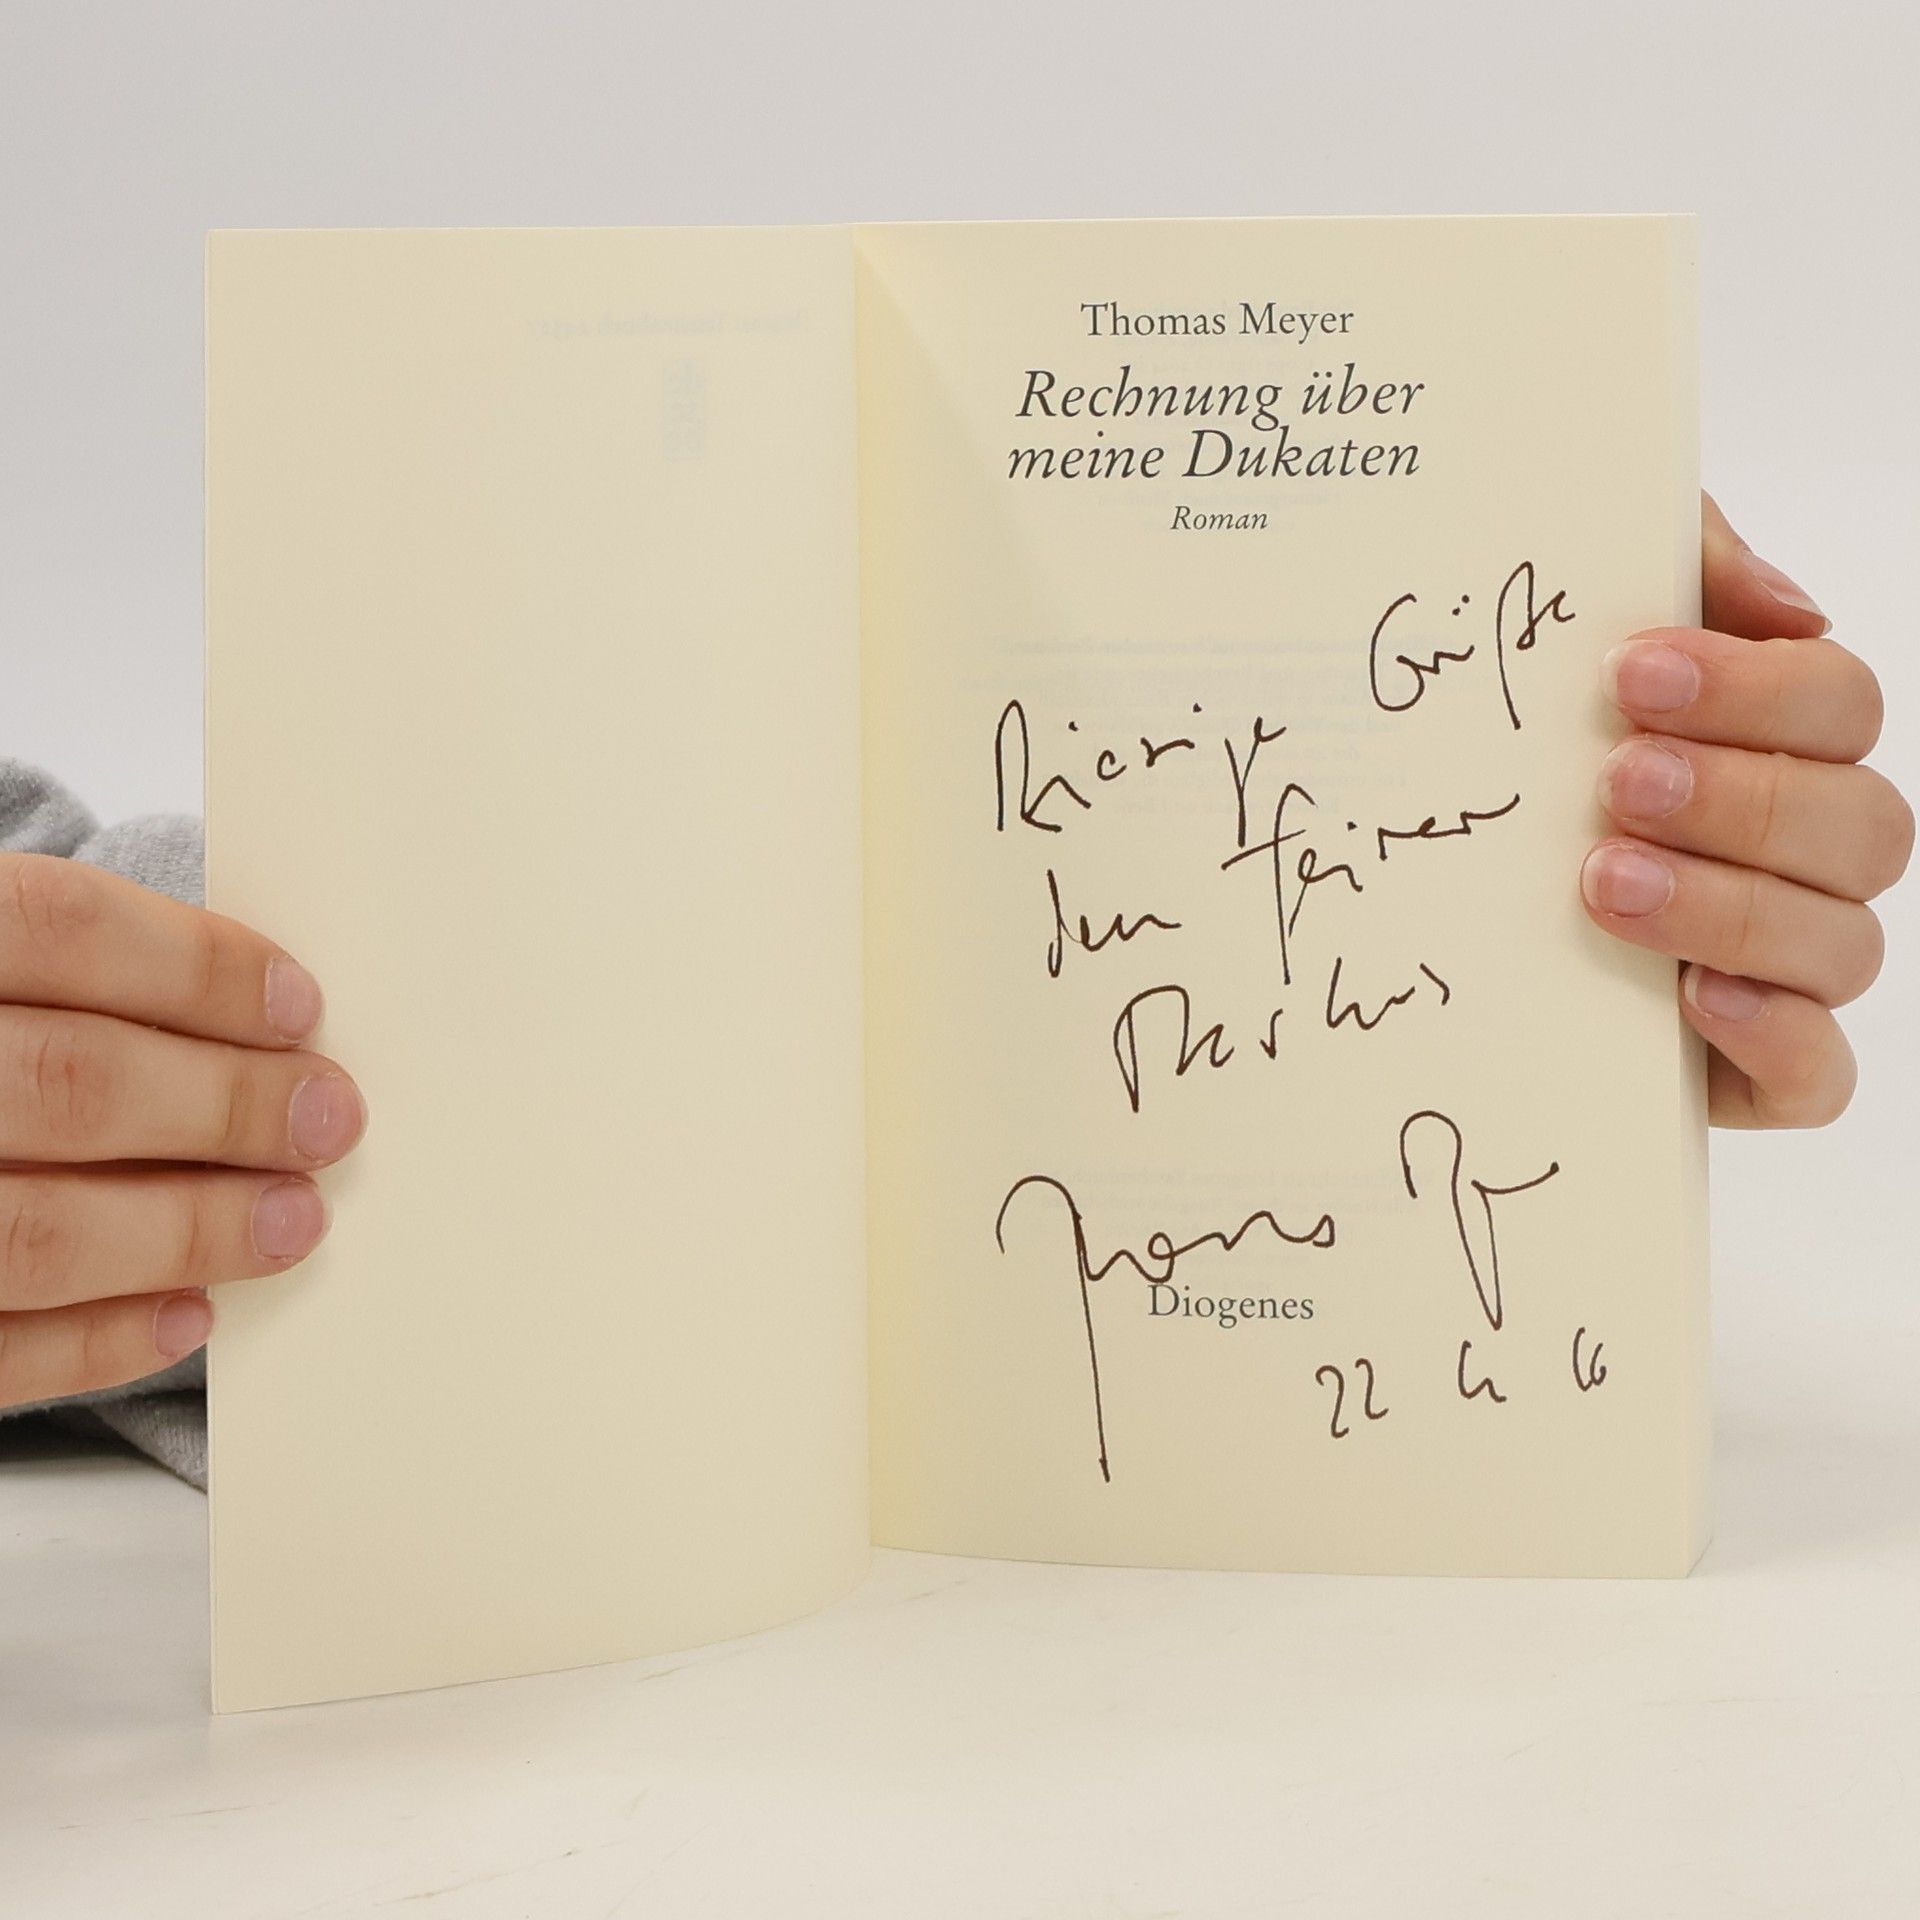 Thomas Meyer
Rechnung über
meine Dukaten
Roman
Riesige Grüße
dem feinen
Markus
Thomas
Diogenes
22 4 16